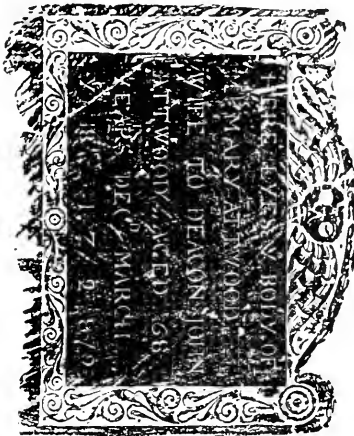 HERE LYES Yᵉ BODY OF
MARY ATWOOD
WIFE TO DEACON JOHN
ATTWOOD AGED 68
YEARS DECᴰ MARCH